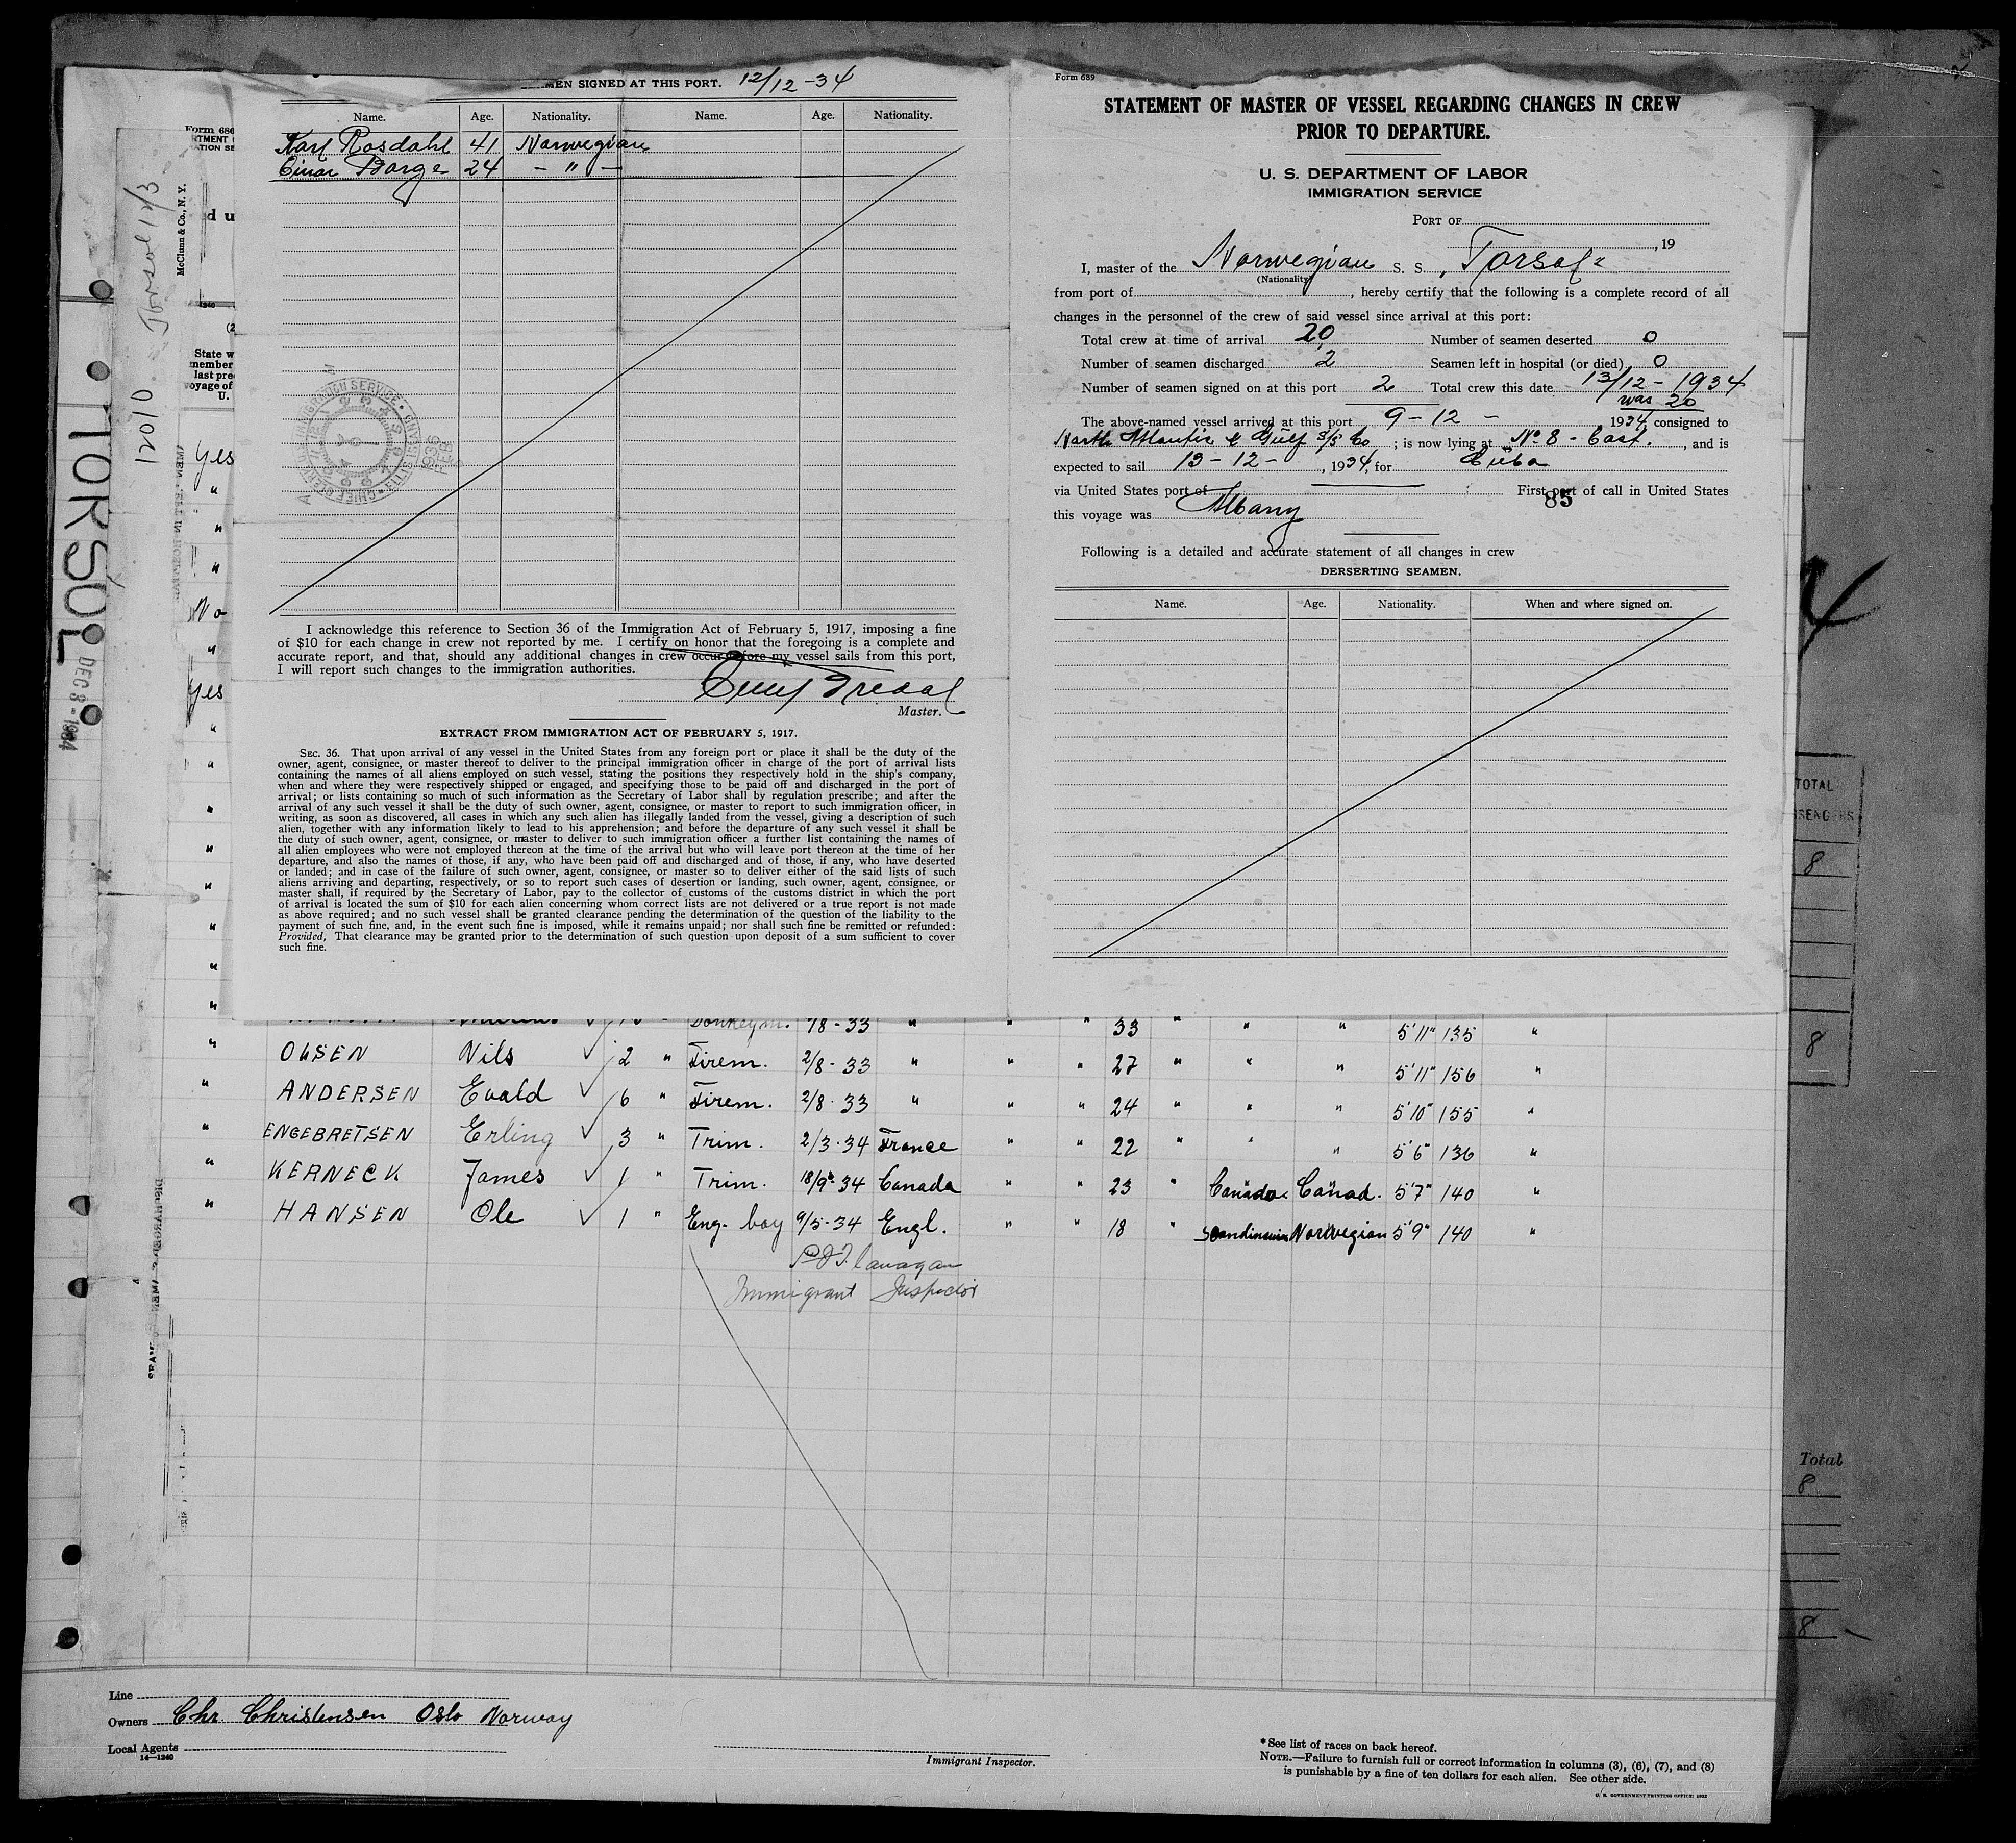 MEN SIGNED AT THIS PORT. 12/12-34
Name. Age. Nationality. Name. Age. Nationality.
Karl Rosdahl 41 Norwegian
Einar Borge 24 - " -
I acknowledge this reference to Section 36 of the Immigration Act of February 5, 1917, imposing a fine
of $10 for each change in crew not reported by me. I certify on honor that the foregoing is a complete and
accurate report, and that, should any additional changes in crew occur before my vessel sails from this port,
I will report such changes to the immigration authorities.
Master.
EXTRACT FROM IMMIGRATION ACT OF FEBRUARY 5, 1917.
SEC. 36. That upon arrival of any vessel in the United States from any foreign port or place it shall be the duty of the
owner, agent, consignee, or master thereof to deliver to the principal immigration officer in charge of the port of arrival lists
containing the names of all aliens employed on such vessel, stating the positions they respectively hold in the ship's company,
when and where they were respectively shipped or engaged, and specifying those to be paid off and discharged in the port of
arrival; or lists containing so much of such information as the Secretary of Labor shall by regulation prescribe; and after the
arrival of any such vessel it shall be the duty of such owner, agent, consignee, or master to report to such immigration officer, in
writing, as soon as discovered, all cases in which any such alien has illegally landed from the vessel, giving a description of such
alien, together with any information likely to lead to his apprehension; and before the departure of any such vessel it shall be
the duty of such owner, agent, consignee, or master to deliver to such immigration officer a further list containing the names of
all alien employees who were not employed thereon at the time of the arrival but who will leave port thereon at the time of her
departure, and also the names of those, if any, who have been paid off and discharged and of those, if any, who have deserted
or landed; and in case of the failure of such owner, agent, consignee, or master so to deliver either of the said lists of such
aliens arriving and departing, respectively, or so to report such cases of desertion or landing, such owner, agent, consignee, or
master shall, if required by the Secretary of Labor, pay to the collector of customs of the customs district in which the port
of arrival is located the sum of $10 for each alien concerning whom correct lists are not delivered or a true report is not made
as above required; and no such vessel shall be granted clearance pending the determination of the question of the liability to the
payment of such fine, and, in the event such fine is imposed, while it remains unpaid; nor shall such fine be remitted or refunded:
Provided, That clearance may be granted prior to the determination of such question upon deposit of a sum sufficient to cover
such fine.
Form 689
STATEMENT OF MASTER OF VESSEL REGARDING CHANGES IN CREW
PRIOR TO DEPARTURE.
U. S. DEPARTMENT OF LABOR
IMMIGRATION SERVICE
PORT OF
, 19
I, master of the Norwegian S. S. Torsol
(Nationality)
from port of , hereby certify that the following is a complete record of all
changes in the personnel of the crew of said vessel since arrival at this port:
Total crew at time of arrival 20 Number of seamen deserted 0
Number of seamen discharged 2 Seamen left in hospital (or died) 0
Number of seamen signed on at this port 2 Total crew this date 13/12-1934
was 20
The above-named vessel arrived at this port 9-12- 1934, consigned to
North Atlantic & Gulf S/S Co ; is now lying at No 8 - East. , and is
expected to sail 13-12- , 1934, for Cuba
via United States port of First port of call in United States
85
this voyage was Albany
Following is a detailed and accurate statement of all changes in crew
DERSERTING SEAMEN.
Name. Age. Nationality. When and where signed on.
TORSOL
DEC 8 - 1934
12010 - Torsol 12/3
McClunn & Co., N. Y.
Form 686
d u
State w
member
last pre
voyage of
U.
Yes
"
"
"
No
"
Yes
"
"
"
"
"
"
"
"
TOTAL
8
8
Total
8
8
Donkeym. 1/8-33 " " " 33 " " " 5'11" 135 "
" OLSEN Nils ✓ 2 " Firem. 2/8-33 " " " 27 " " " 5'11" 156 "
" ANDERSEN Evald ✓ 6 " Firem. 2/8-33 " " " 24 " " " 5'10" 155 "
" ENGEBRETSEN Erling ✓ 3 " Trim. 2/3-34 France " " 22 " " " 5'6" 136 "
" KERNECK James ✓ 1 " Trim. 18/9-34 Canada " " 23 " Canada Canad. 5'7" 140 "
" HANSEN Ole ✓ 1 " Eng. boy 9/5-34 Engl. " " 18 " Scandinavian Norwegian 5'9" 140 "
Immigrant Inspector
Line
Owners Chr. Christensen Oslo Norway
Local Agents
14-1240
Immigrant Inspector.
*See list of races on back hereof.
NOTE.—Failure to furnish full or correct information in columns (3), (6), (7), and (8)
is punishable by a fine of ten dollars for each alien. See other side.
U. S. GOVERNMENT PRINTING OFFICE: 1932